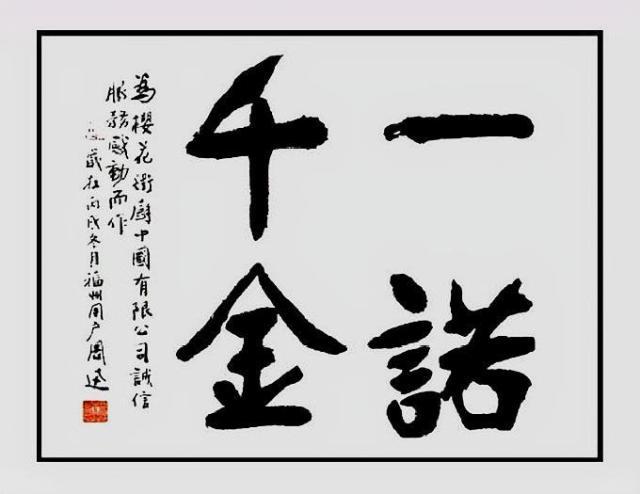 一諾
千金
為櫻花衛廚中國有限公司誠信
服務感動而作
歲在丙戌冬月福州用户周迅